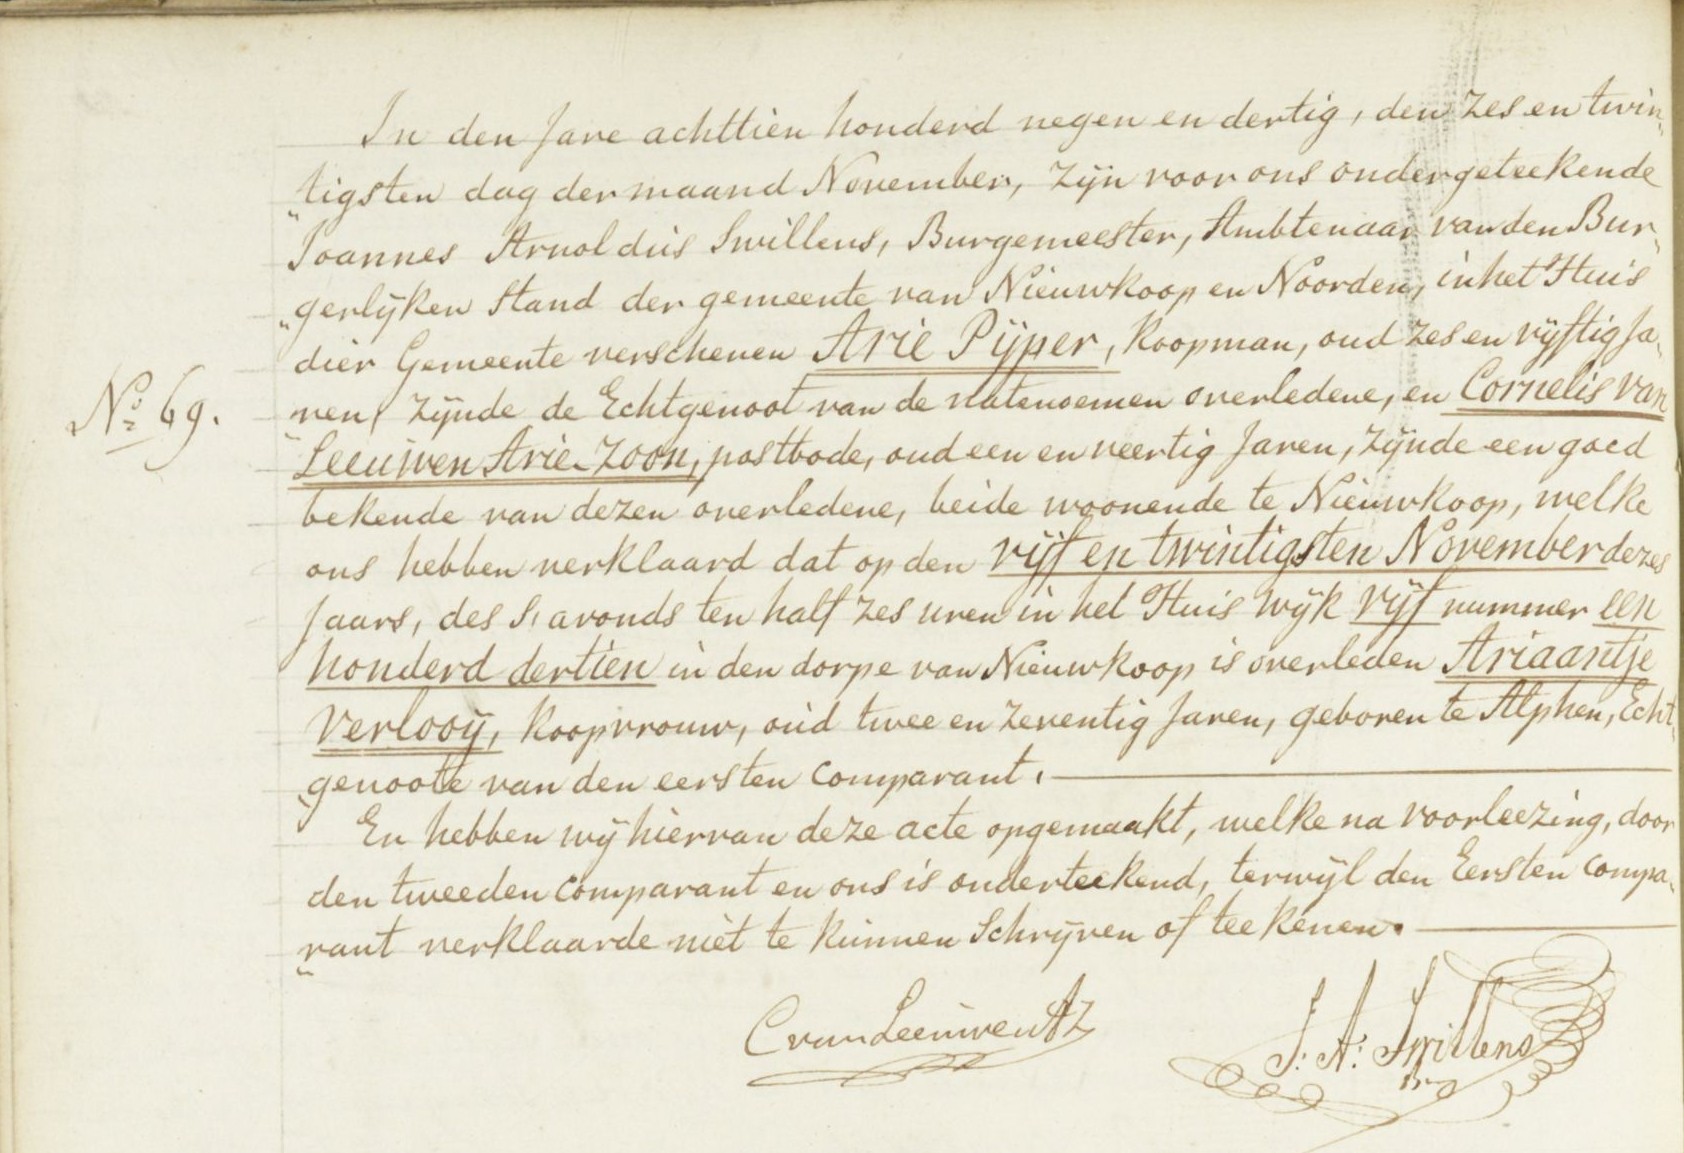 In den Jare achttien honderd negen en dertig, den zes en twin„
„tigsten dag der maand November, zijn voor ons ondergeteekende
Joannes Arnoldus Swillens, Burgemeester, Ambtenaar van den Bur„
„gerlijken Stand der gemeente van Nieuwkoop en Noorden, in het Huis
dier Gemeente verschenen Arie Pijper, Koopman, oud zes en vijftig Ja„
No 69.
„ren, zijnde de Echtgenoot van de natenoemen overledene, en Cornelis van
Leeuwen Arie-Zoon, postbode, oud een en veertig Jaren, zijnde een goed
bekende van dezen overledene, beide woonende te Nieuwkoop, welke
ons hebben verklaard dat op den vijf en twintigsten November dezes
Jaars, des s'avonds ten half zes uren in het Huis wijk vijf nummer een
honderd dertien in den dorpe van Nieuwkoop is overleden Ariaantje
Verlooij, Koopvrouw, oud twee en zeventig Jaren, geboren te Alphen, Echt„
„genoote van den eersten Comparant.
En hebben wij hiervan deze acte opgemaakt, welke na voorleezing, door
den tweeden Comparant en ons is onderteekend, terwijl den Eersten Compa„
„rant verklaarde niet te kunnen Schrijven of teekenen.
C van Leeuwen Az
J: A: Swillens
Br